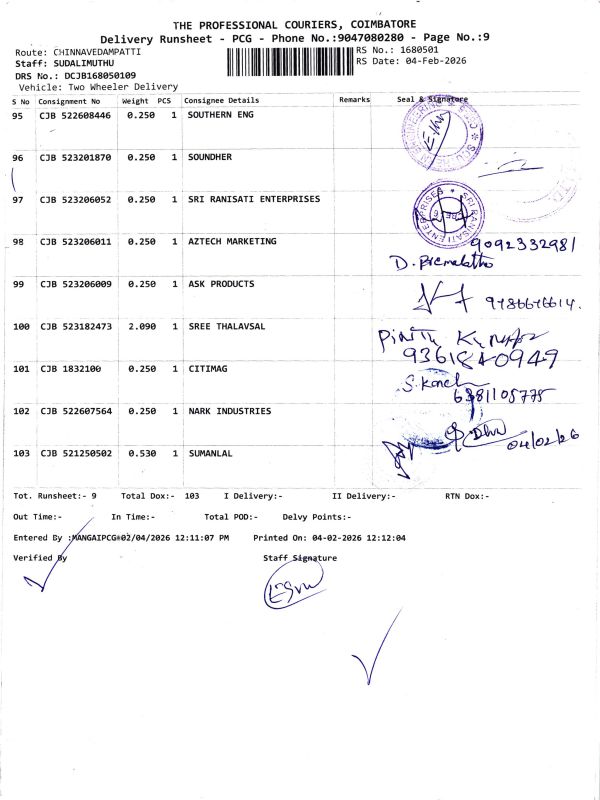 THE PROFESSIONAL COURIERS, COIMBATORE
Delivery Runsheet - PCG - Phone No.:9047080280 - Page No.:9
Route: CHINNAVEDAMPATTI RS No.: 1680501
Staff: SUDALIMUTHU RS Date: 04-Feb-2026
DRS No.: DCJB168050109
Vehicle: Two Wheeler Delivery
S No Consignment No Weight PCS Consignee Details Remarks Seal & Signature
95 CJB 522608446 0.250 1 SOUTHERN ENG
96 CJB 523201870 0.250 1 SOUNDHER
97 CJB 523206052 0.250 1 SRI RANISATI ENTERPRISES
SRI RANISATI ENTERPRISES
98 CJB 523206011 0.250 1 AZTECH MARKETING 9092332981
D. Premalatha
99 CJB 523206009 0.250 1 ASK PRODUCTS 9786676614.
100 CJB 523182473 2.090 1 SREE THALAVSAL
9361840949
101 CJB 1832100 0.250 1 CITIMAG
6381105775
102 CJB 522607564 0.250 1 NARK INDUSTRIES
04/02/26
103 CJB 521250502 0.530 1 SUMANLAL
Tot. Runsheet:- 9 Total Dox:- 103 I Delivery:- II Delivery:- RTN Dox:-
Out Time:- In Time:- Total POD:- Delvy Points:-
Entered By :MANGAIPCG#02/04/2026 12:11:07 PM Printed On: 04-02-2026 12:12:04
Verified By Staff Signature